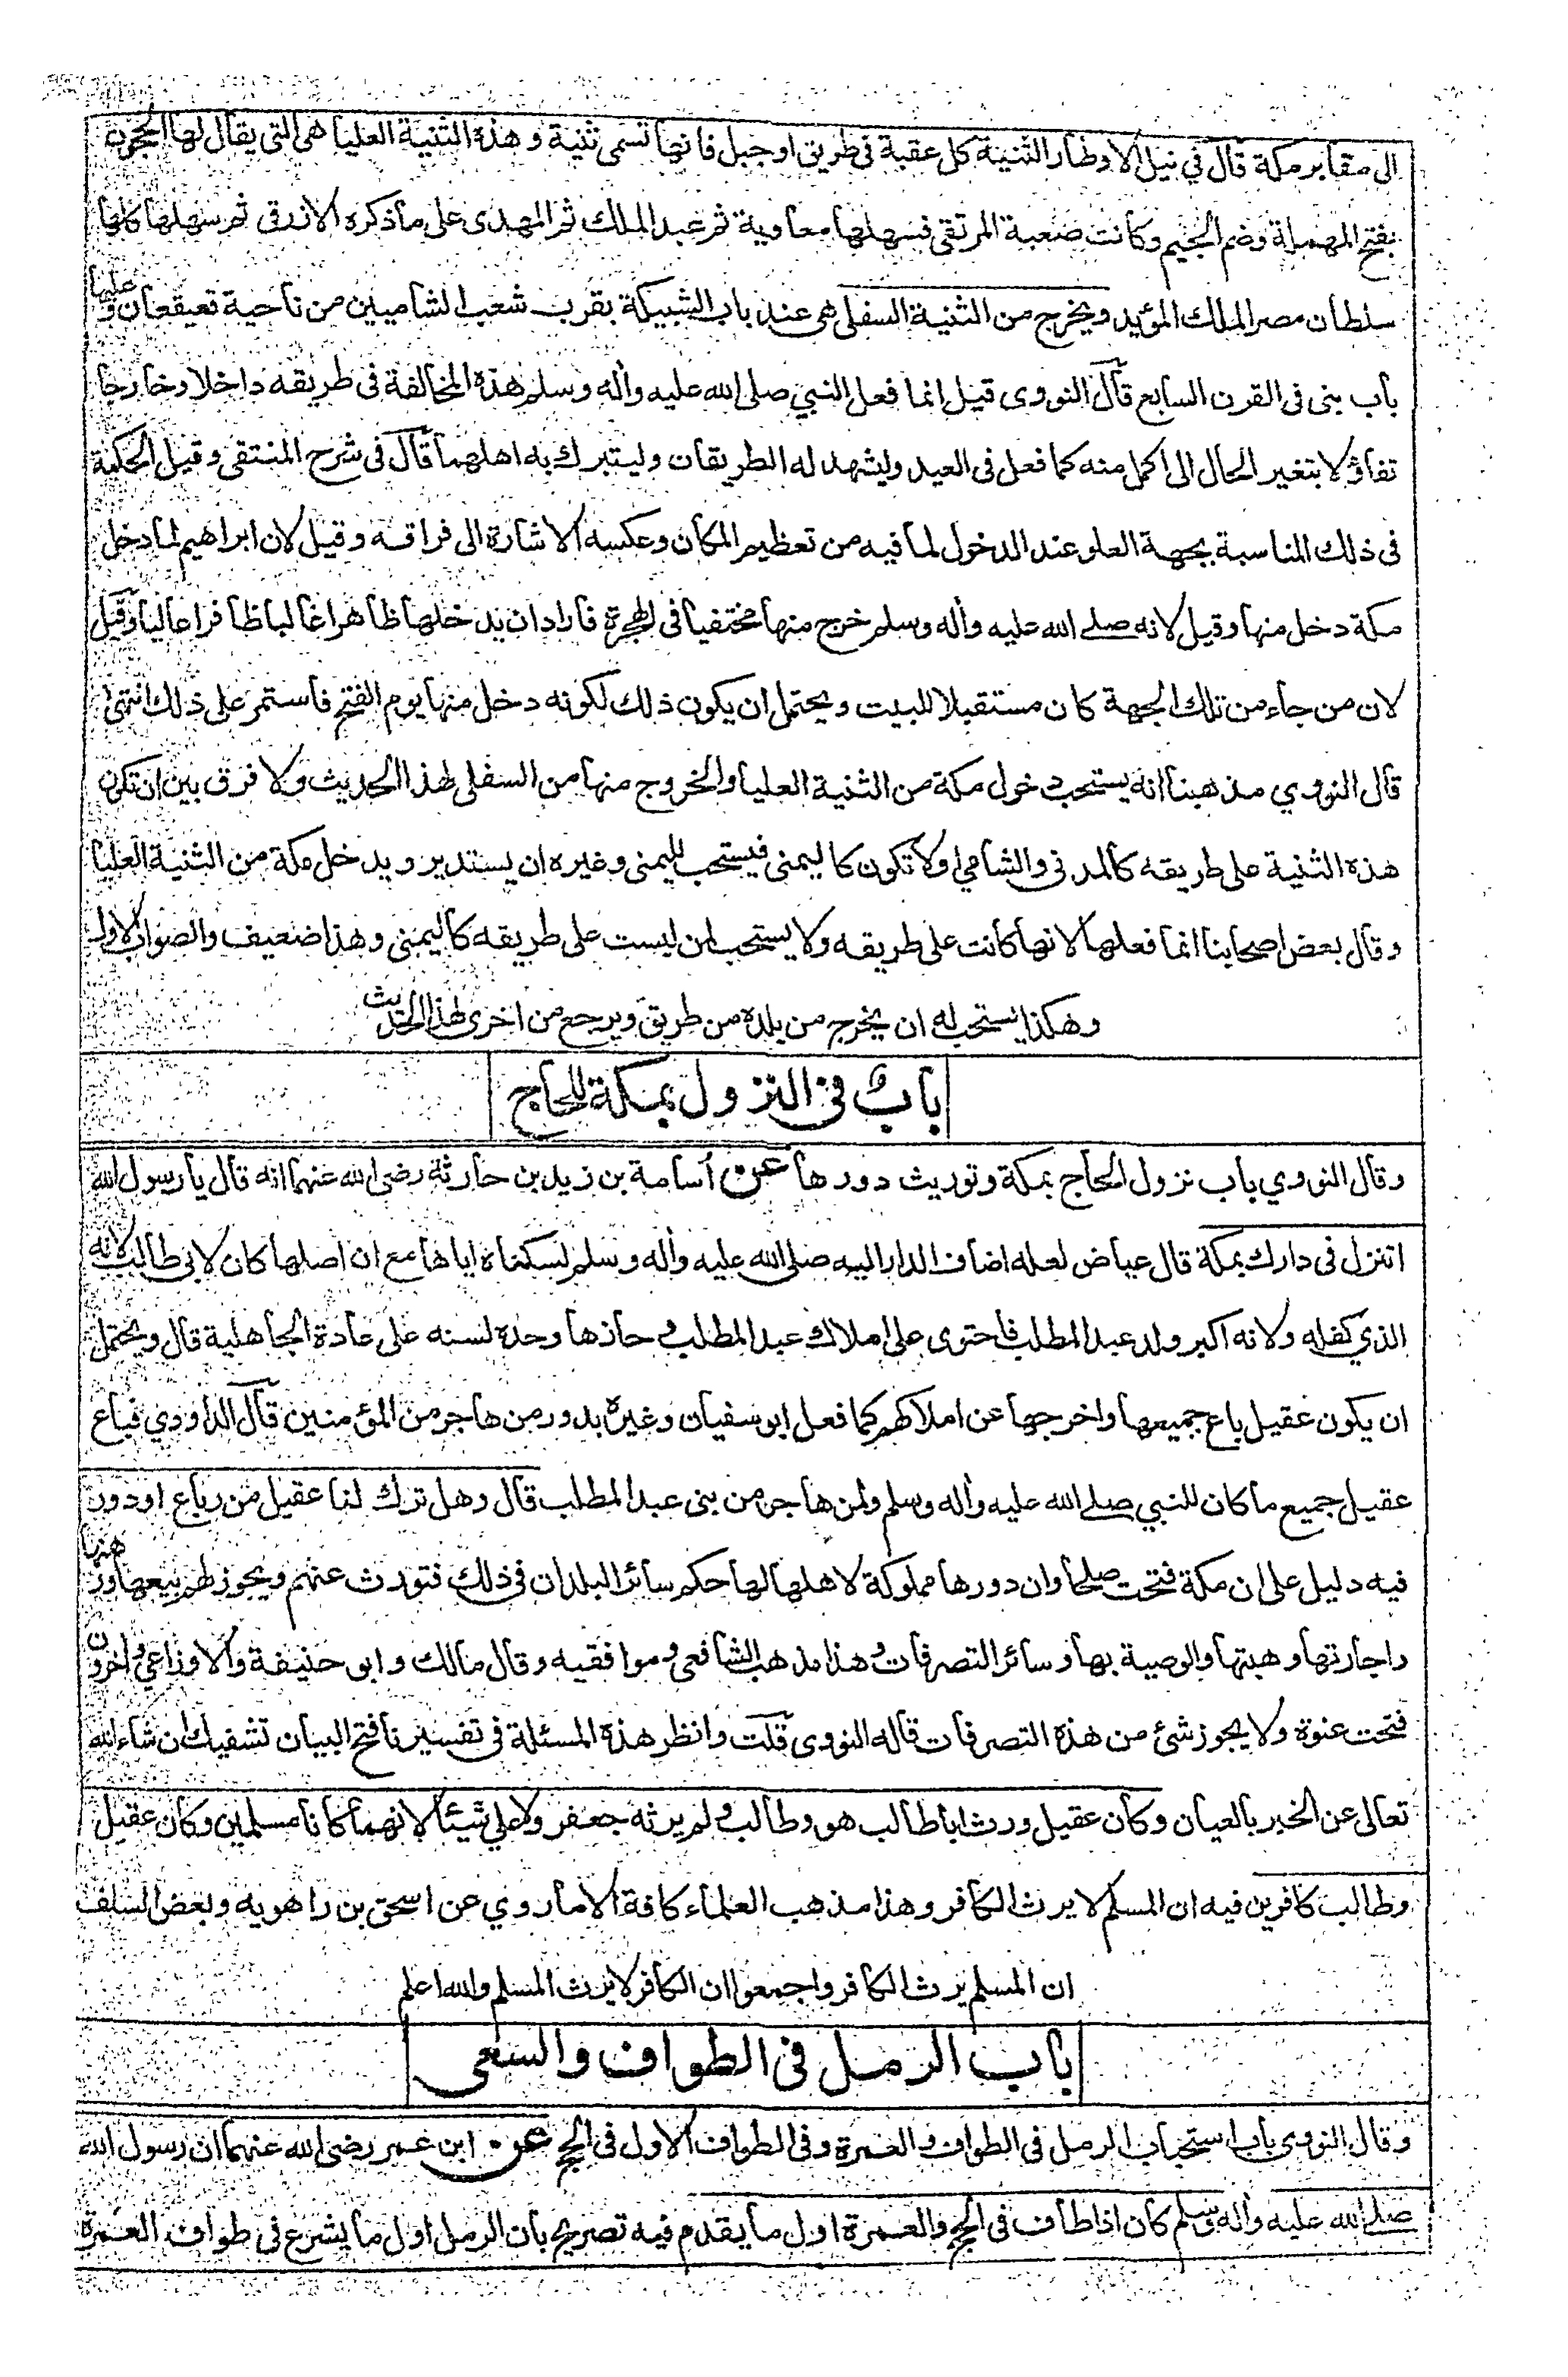 الى مقابر مكة قال في نيل الاوطار الثنية كل عقبة في طريق او جبل فانها تسمى ثنية و هذه الثنية العليا هي التي يقال لها الحجون
بفتح المهملة وضم الجيم وكانت صعبة المرتقى فسهلها معاوية ثم عبد الملك ثم المهدى على ما ذكره الازرقى ثم سهلها كلها
سلطان مصر الملك المؤيد ويخرج من الثنية السفلى هى عند باب الشبيكة بقرب شعب الشاميين من ناحية قعيقعان و عليها
باب بنى فى القرن السابع قال النووى قيل انما فعل النبي صلى الله عليه واله وسلم هذه المخالفة فى طريقه داخلا وخارجا
تفاؤلا بتغير الحال الى اكمل منه كما فعل فى العيد وليشهد له الطريقان وليتبرك به اهلهما قال فى شرح المنتقى وقيل الحكمة
فى ذلك المناسبة بجهة العلو عند الدخول لما فيه من تعظيم المكان وعكسه الاشارة الى فراقه وقيل لان ابراهيم لما دخل
مكة دخل منها وقيل لانه صلى الله عليه واله وسلم خرج منها مختفيا فى الهجرة فاراد ان يدخلها ظاهرا غالبا ظافرا عاليا وقيل
لان من جاء من تلك الجهة كان مستقبلا للبيت ويحتمل ان يكون ذلك لكونه دخل منها يوم الفتح فاستمر على ذلك انتهى
قال النووي مذهبنا انه يستحب دخول مكة من الثنية العليا والخروج منها من السفلى لهذا الحديث ولا فرق بين ان تكون
هذه الثنية على طريقه كالمدنى والشامي اولا تكون كاليمنى فيستحب لليمنى وغيره ان يستدير ويدخل مكة من الثنية العليا
وقال بعض اصحابنا انما فعلها لانها كانت على طريقه ولا يستحب لمن ليست على طريقه كاليمنى وهذا ضعيف والصواب الاول
وهكذا يستحب له ان يخرج من بلده من طريق ويرجع من اخرى لهذا الحديث
باب فى النزول بمكة للحاج
وقال النووي باب نزول الحاج بمكة وتوريث دورها عن أسامة بن زيد بن حارثة رضى الله عنهما انه قال يا رسول الله
اتنزل فى دارك بمكة قال عياض لعله اضاف الدار اليه صلى الله عليه واله وسلم لسكناه اياها مع ان اصلها كان لابى طالب لانه
الذي كفله ولانه اكبر ولد عبد المطلب فاحتوى على املاك عبد المطلب و حازها وحده لسنه على عادة الجاهلية قال ويحتمل
ان يكون عقيل باع جميعها واخرجها عن املاكهم كما فعل ابو سفيان وغيره بدور من هاجر من المؤمنين قال الداودي فباع
عقيل جميع ما كان للنبي صلى الله عليه واله وسلم ولمن هاجر من بنى عبد المطلب قال وهل ترك لنا عقيل من رباع او دور
فيه دليل على ان مكة فتحت صلحا وان دورها مملوكة لاهلها لها حكم سائر البلدان فى ذلك فتورث عنهم ويجوز لهم بيعها ورهنها
واجارتها وهبتها والوصية بها وسائر التصرفات وهذا مذهب الشافعى وموافقيه وقال مالك وابو حنيفة والاوزاعي واخرون
فتحت عنوة ولا يجوز شئ من هذه التصرفات قاله النووى قلت وانظر هذه المسئلة فى تفسيرنا فتح البيان تشفيك ان شاء الله
تعالى عن الخبر بالعيان وكان عقيل ورث ابا طالب هو وطالب و لم يرثه جعفر ولا علي شيئا لانهما كانا مسلمين وكان عقيل
وطالب كافرين فيه ان المسلم لا يرث الكافر وهذا مذهب العلماء كافة الا ما روي عن اسحق بن راهويه وبعض السلف
ان المسلم يرث الكافر واجمعوا ان الكافر لا يرث المسلم والله اعلم
باب الرمل فى الطواف والسعى
وقال النووى باب استحباب الرمل فى الطواف و العمرة وفى الطواف الاول فى الحج عن ابن عمر رضى الله عنهما ان رسول الله
صلى الله عليه واله وسلم كان اذا طاف فى الحج والعمرة اول ما يقدم فيه تصريح بان الرمل اول ما يشرع فى طواف العمرة